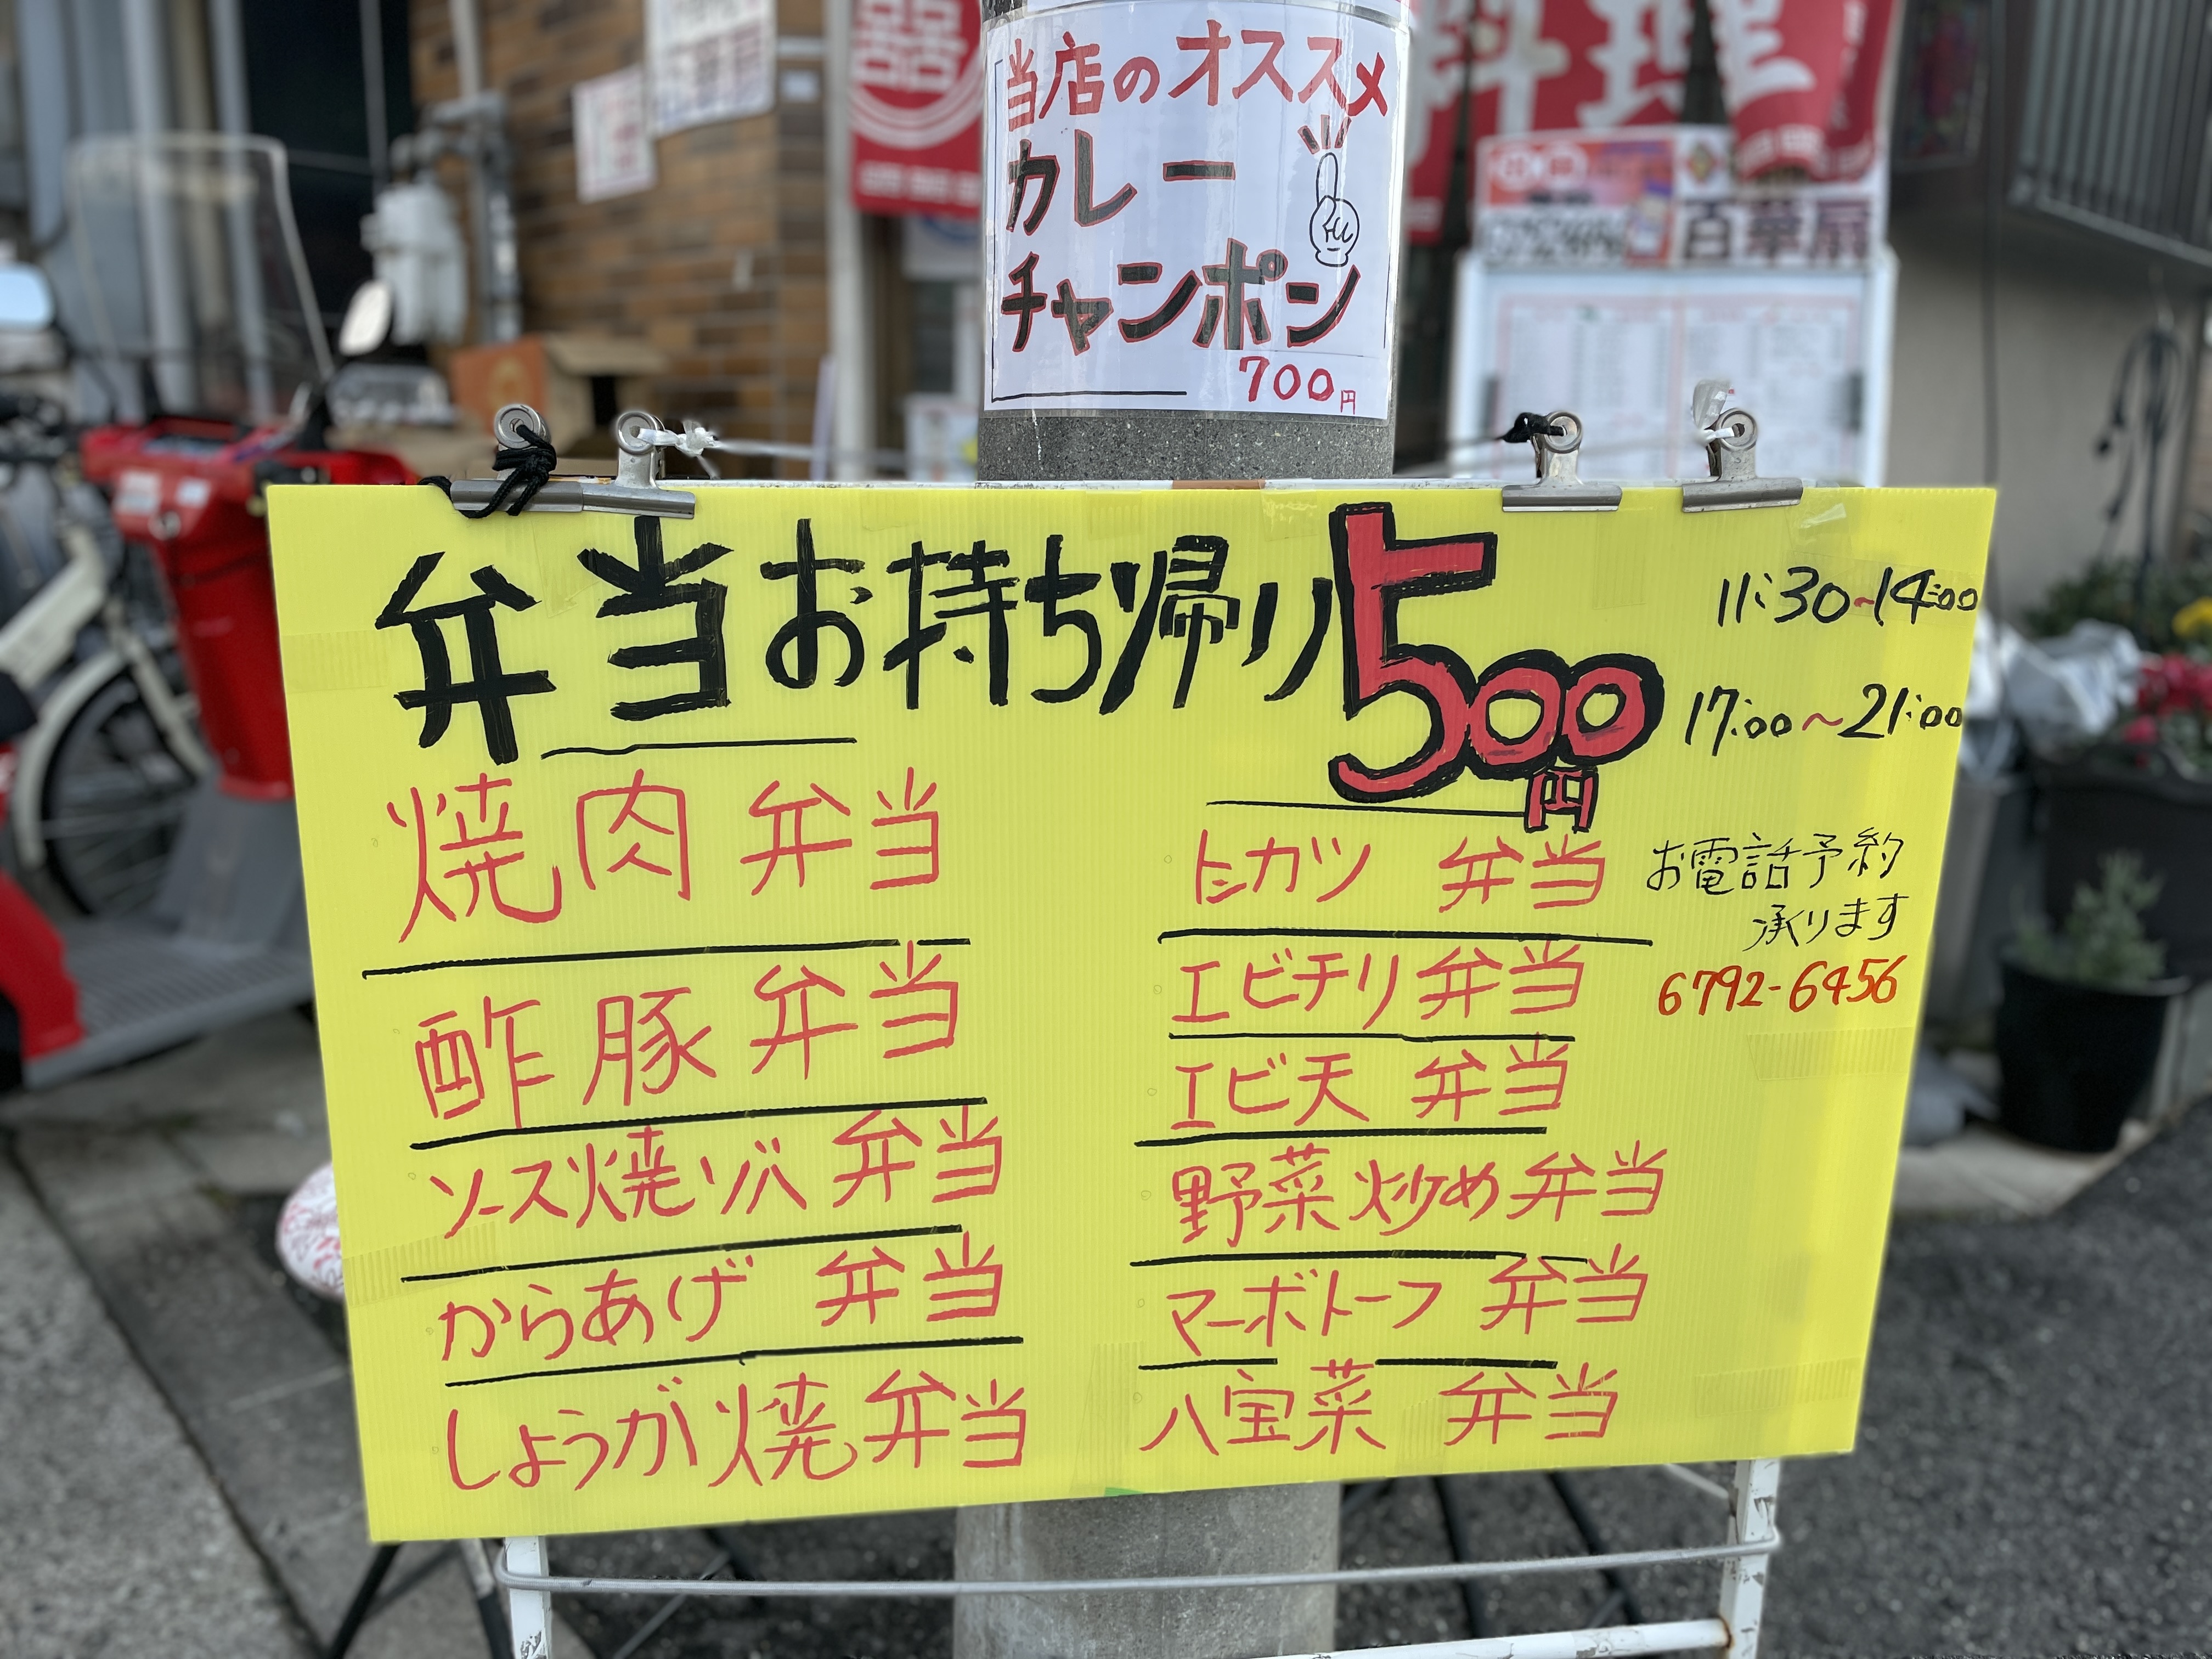 当店のオススメ
カレー
チャンポン
700円
料理
百華
弁当お持ち帰り500円
11:30~14:00
17:00~21:00
焼肉弁当
酢豚弁当
ソース焼ソバ弁当
からあげ弁当
しょうが焼弁当
トンカツ弁当
エビチリ弁当
エビ天弁当
野菜炒め弁当
マーボトーフ弁当
八宝菜弁当
お電話予約
承ります
6792-6456